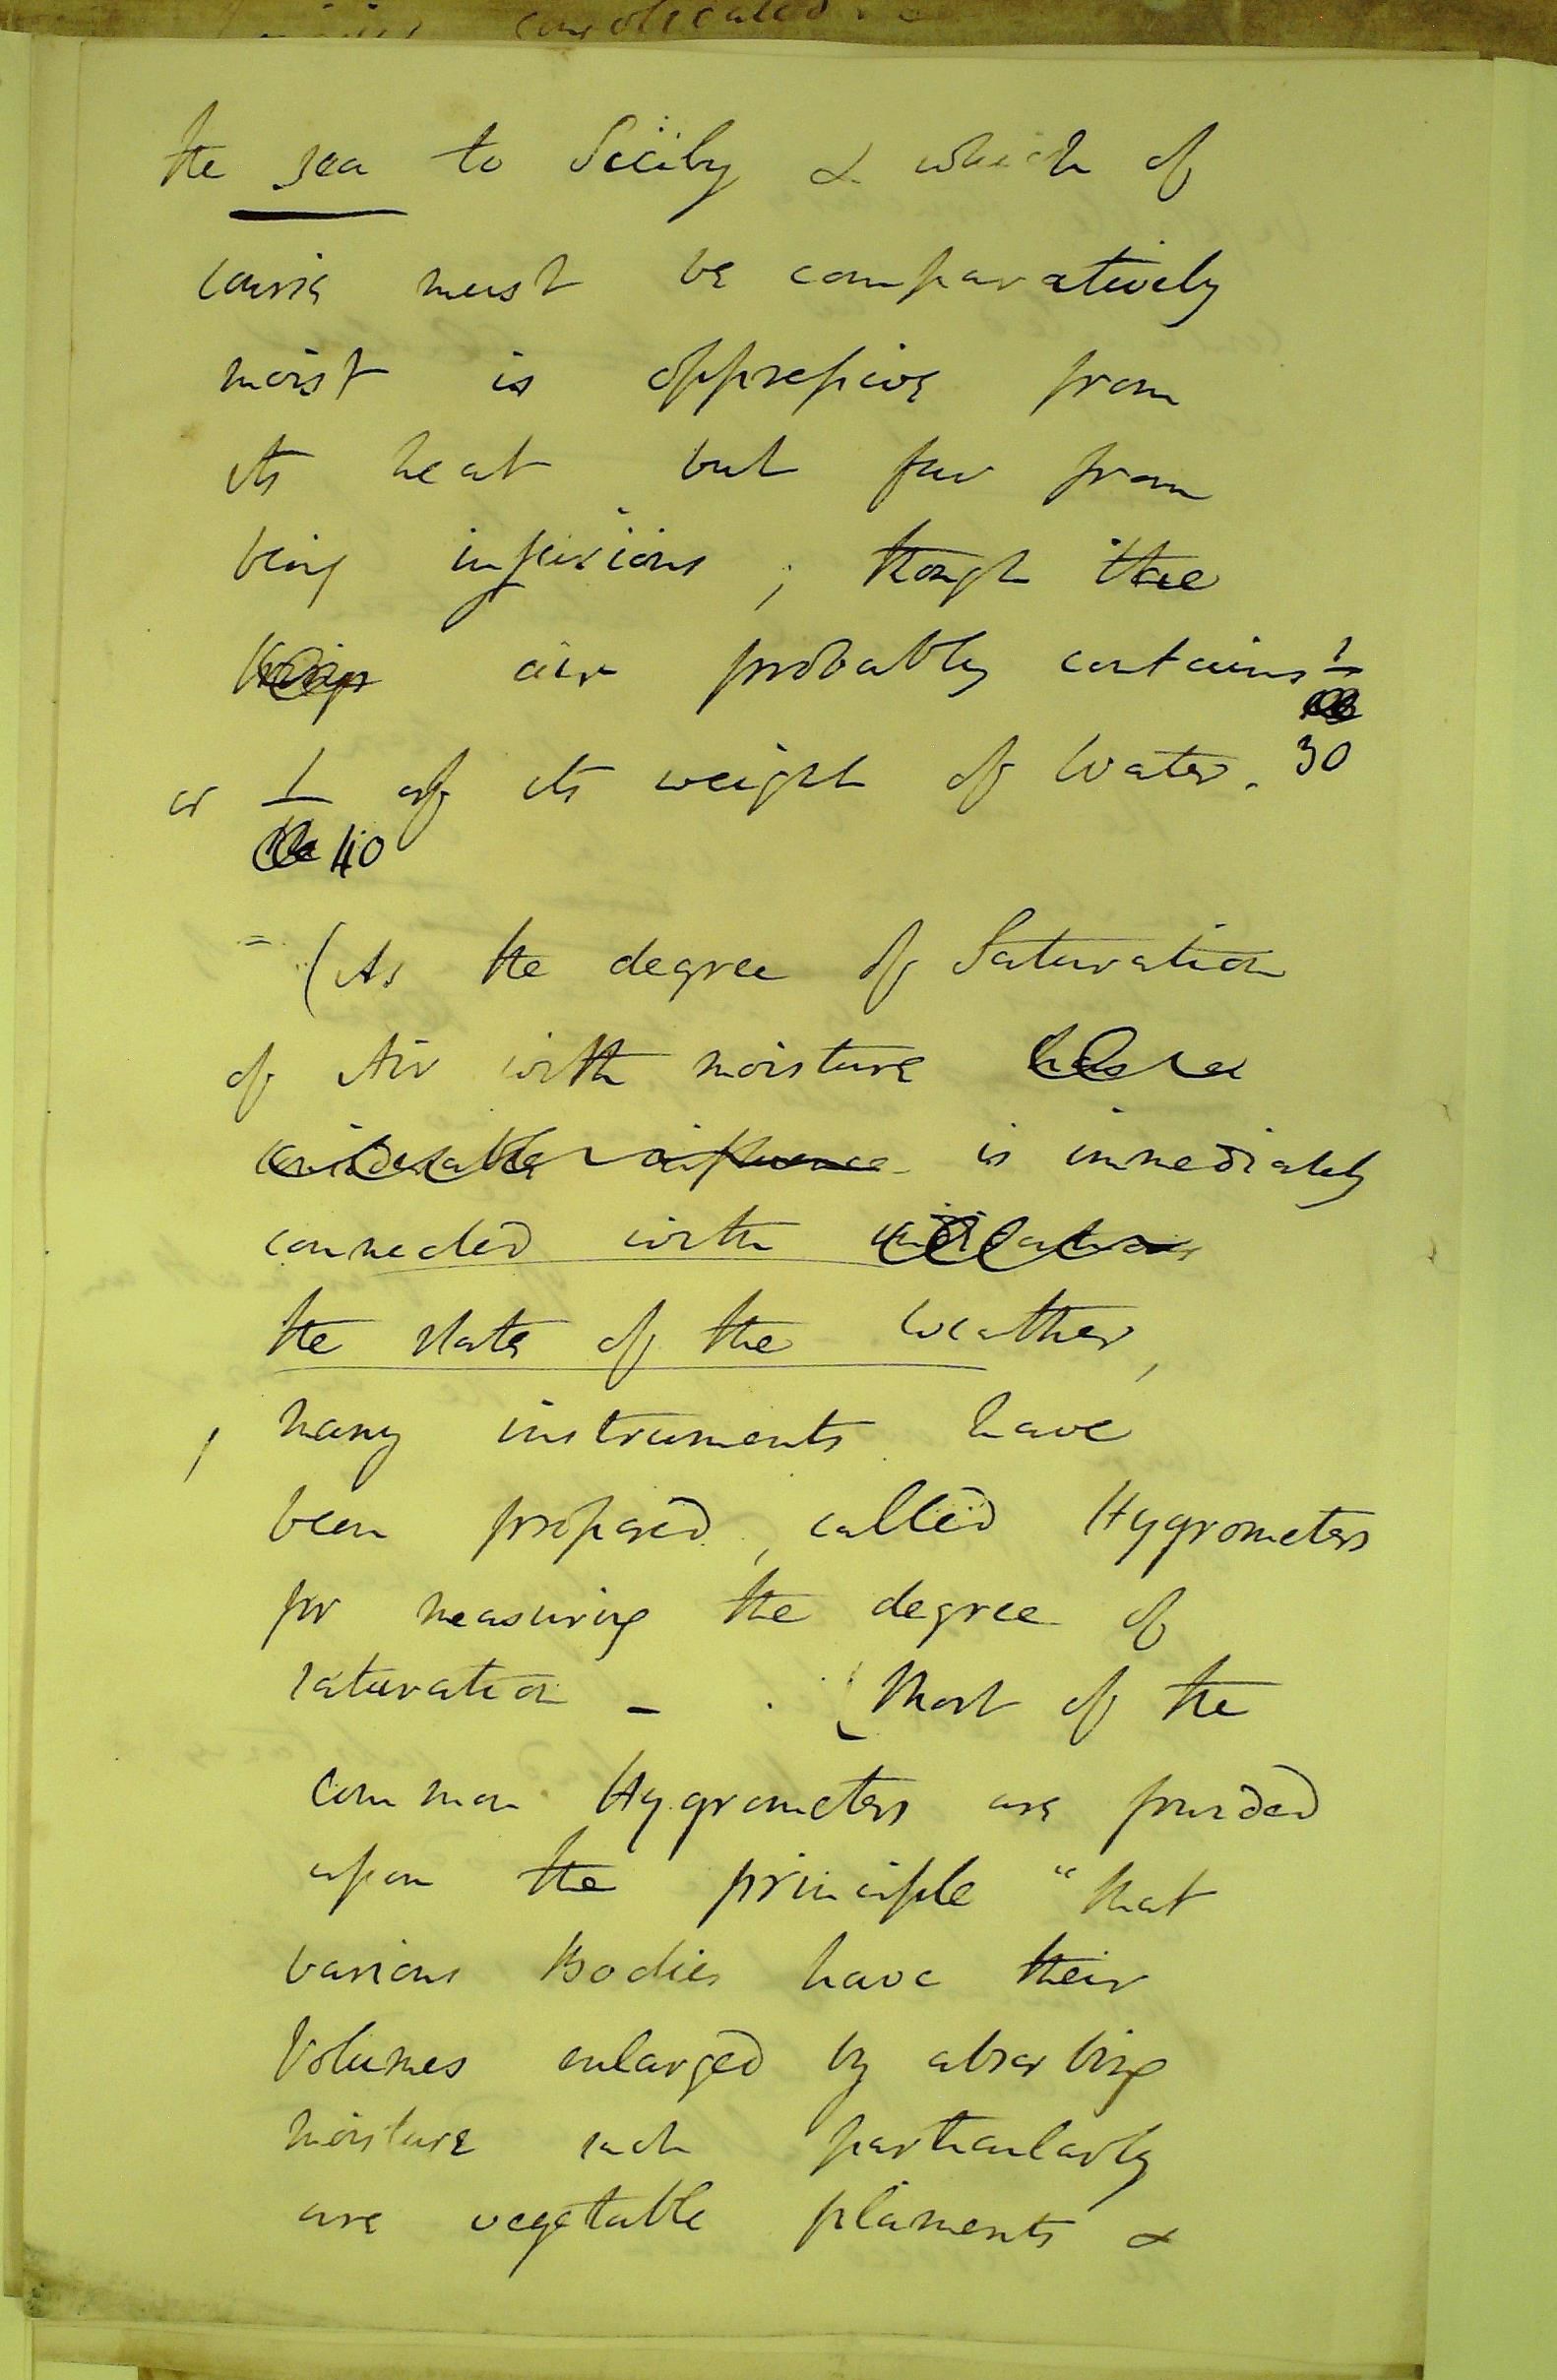 consolidated
the sea to Sicily & which of
course must be comparatively
moist is oppressive from
its heat but far from
being injurious ; though the
being air probably contains 1
30
or 1 of its weight of Water.
40
= (As the degree of Saturation
of Air with moisture has a
considerable influence is immediately
connected with
the state of the weather,
, many instruments have
been proposed, called Hygrometers
for measuring the degree of
saturation – . (Most of the
common Hygrometers are founded
upon the principle "that
various Bodies have their
Volumes enlarged by absorbing
moisture such particularly
are vegetable filaments &